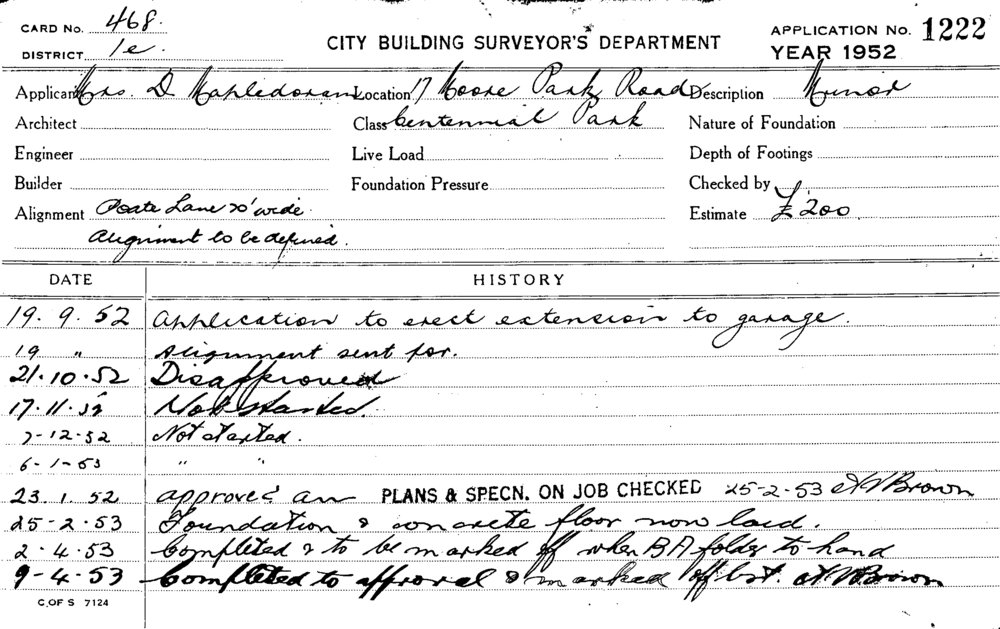 CARD No. 468.
DISTRICT 1e.
CITY BUILDING SURVEYOR'S DEPARTMENT
APPLICATION No. 1222
YEAR 1952
Applicant Mrs. D. Mapledoram Location 17 Moore Park Road Description Minor
Architect Class Centennial Park Nature of Foundation
Engineer Live Load Depth of Footings
Builder Foundation Pressure Checked by
Alignment Poate Lane 20' wide. Estimate £200.
Alignment to be defined.
DATE HISTORY
19. 9. 52 Application to erect extension to garage.
19 " Alignment sent for.
21.10.52 Disapproved
17.11.52 Not started.
7-12-52 Not started.
6-1-53 " "
23.1.52 approved PLANS & SPECN. ON JOB CHECKED 25-2-53 Brown
25-2-53 Foundation & concrete floor now laid.
2.4.53 Completed & to be marked off when BA folder to hand
9-4-53 Completed to approval & marked off Brown
C.OF S 7124